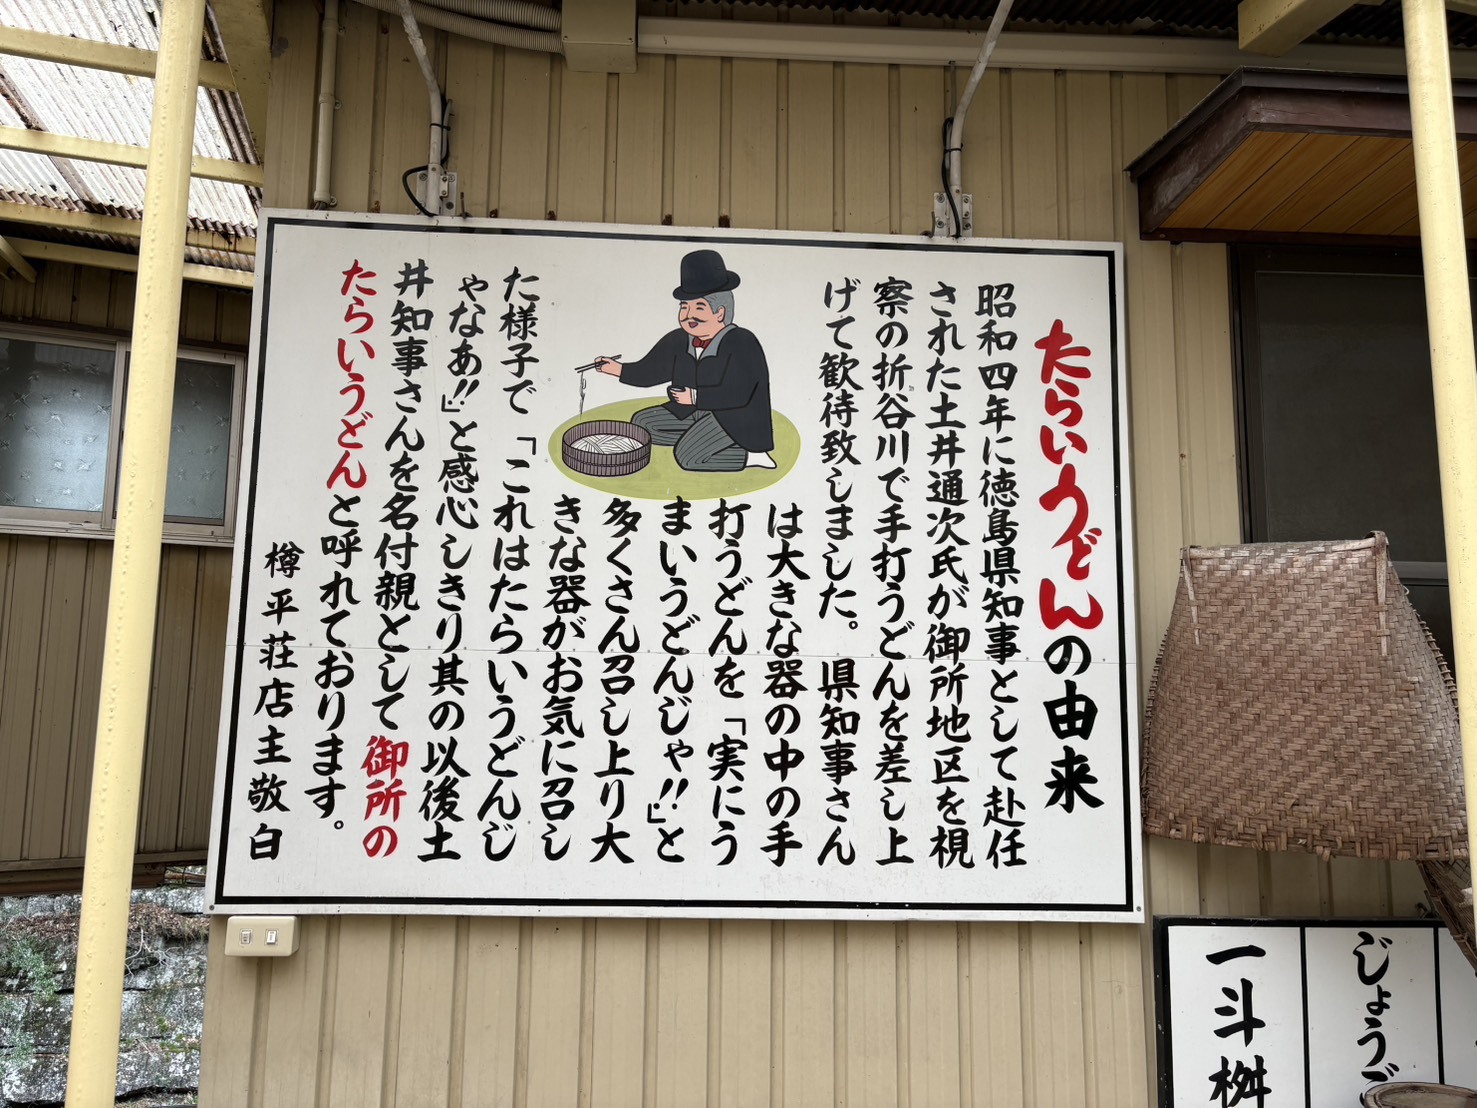 たらいうどんの由来
昭和四年に徳島県知事として赴任
された土井通次氏が御所地区を視
察の折谷川で手打うどんを差し上
げて歓待致しました。県知事さん
は大きな器の中の手
打うどんを「実にう
まいうどんじゃ!!」と
多くさん召し上り大
きな器がお気に召し
た様子で「これはたらいうどんじ
ゃなあ!!」と感心しきり其の以後土
井知事さんを名付親として御所の
たらいうどんと呼れております。
樽平荘店主敬白
一斗桝
じょうご